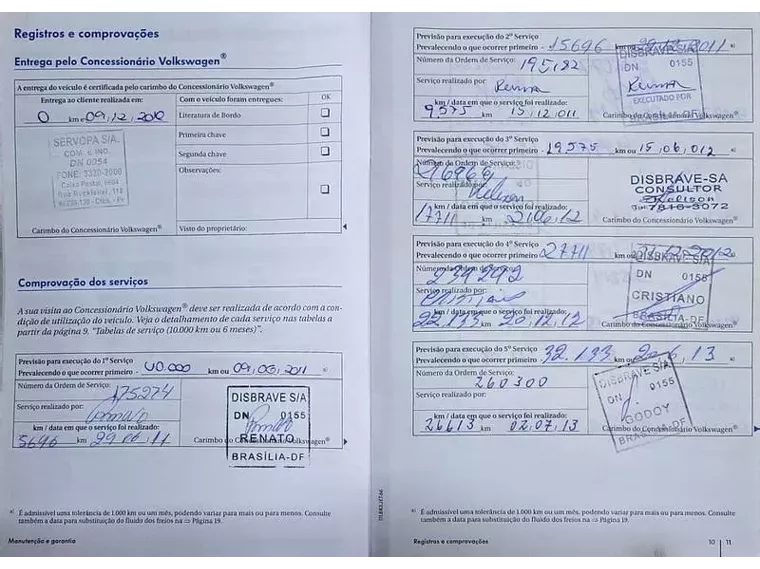 Registros e comprovações
Entrega pelo Concessionário Volkswagen®
A entrega do veículo é certificada pelo carimbo do Concessionário Volkswagen®
Entrega ao cliente realizada em:
0 km e 09/12/2010
Com o veículo foram entregues:
OK
Literatura de Bordo
Primeira chave
Segunda chave
Observações:
SERVOPA S/A.
COM. e IND.
DN 0054
FONE: 3330-2000
Carimbo do Concessionário Volkswagen®
Visto do proprietário:
Comprovação dos serviços
A sua visita ao Concessionário Volkswagen® deve ser realizada de acordo com a con-
dição de utilização do veículo. Veja o detalhamento de cada serviço nas tabelas a
partir da página 9. "Tabelas de serviço (10.000 km ou 6 meses)".
Previsão para execução do 1º Serviço
Prevalecendo o que ocorrer primeiro - 10.000 km ou 09/06/2011 a)
Número da Ordem de Serviço:
175274
Serviço realizado por:
km / data em que o serviço foi realizado:
5696 km 29.06.11
DISBRAVE S/A
DN 0155
RENATO
BRASÍLIA-DF
Carimbo do Concessionário Volkswagen®
a) É admissível uma tolerância de 1.000 km ou um mês, podendo variar para mais ou para menos. Consulte
também a data para substituição do fluido dos freios na ⇒ Página 19.
Manutenção e garantia
Previsão para execução do 2º Serviço
Prevalecendo o que ocorrer primeiro - 15696 km ou 29.12.2011 a)
Número da Ordem de Serviço: 195,182
Serviço realizado por:
km / data em que o serviço foi realizado:
9575 km 15.12.011
DISBRAVE S/A
DN 0155
EXECUTADO POR
Carimbo do Concessionário Volkswagen®
Previsão para execução do 3º Serviço
Prevalecendo o que ocorrer primeiro - 19575 km ou 15,06,012 a)
Número da Ordem de Serviço:
Serviço realizado por:
km / data em que o serviço foi realizado:
17711 km 21.06.12
DISBRAVE-SA
CONSULTOR
7816-3072
Carimbo do Concessionário Volkswagen®
Previsão para execução do 4º Serviço
Prevalecendo o que ocorrer primeiro 27711 km ou a)
Número da Ordem de Serviço:
239292
Serviço realizado por:
km / data em que o serviço foi realizado:
22.133 km 20.12.12
DISBRAVE S/A
DN 0155
CRISTIANO
BRASÍLIA-DF
Carimbo do Concessionário Volkswagen®
Previsão para execução do 5º Serviço
Prevalecendo o que ocorrer primeiro 32.133 km ou 20.6.13 a)
Número da Ordem de Serviço:
260300
Serviço realizado por:
km / data em que o serviço foi realizado:
26613 km 02.07.13
DISBRAVE S/A
DN 0155
GODOY
BRASÍLIA-DF
Carimbo do Concessionário Volkswagen®
a) É admissível uma tolerância de 1.000 km ou um mês, podendo variar para mais ou para menos. Consulte
também a data para substituição do fluido dos freios na ⇒ Página 19.
Registros e comprovações
10 | 11